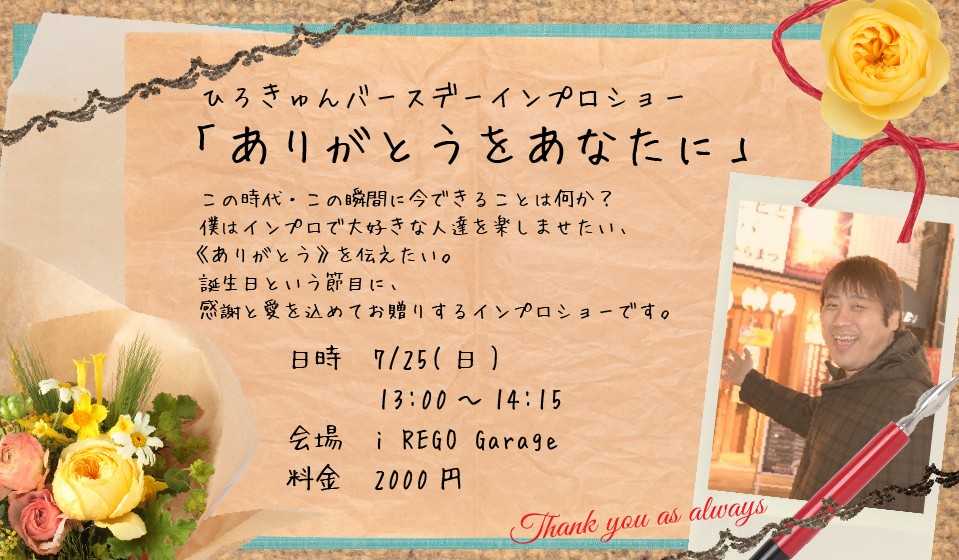 ひろきゅんバースデーインプロショー
「ありがとうをあなたに」
この時代・この瞬間に今できることは何か？
僕はインプロで大好きな人達を楽しませたい、
《ありがとう》を伝えたい。
誕生日という節目に、
感謝と愛を込めてお贈りするインプロショーです。
日時 7/25(日)
13:00～14:15
会場 i REGO Garage
料金 2000円
Thank you as always